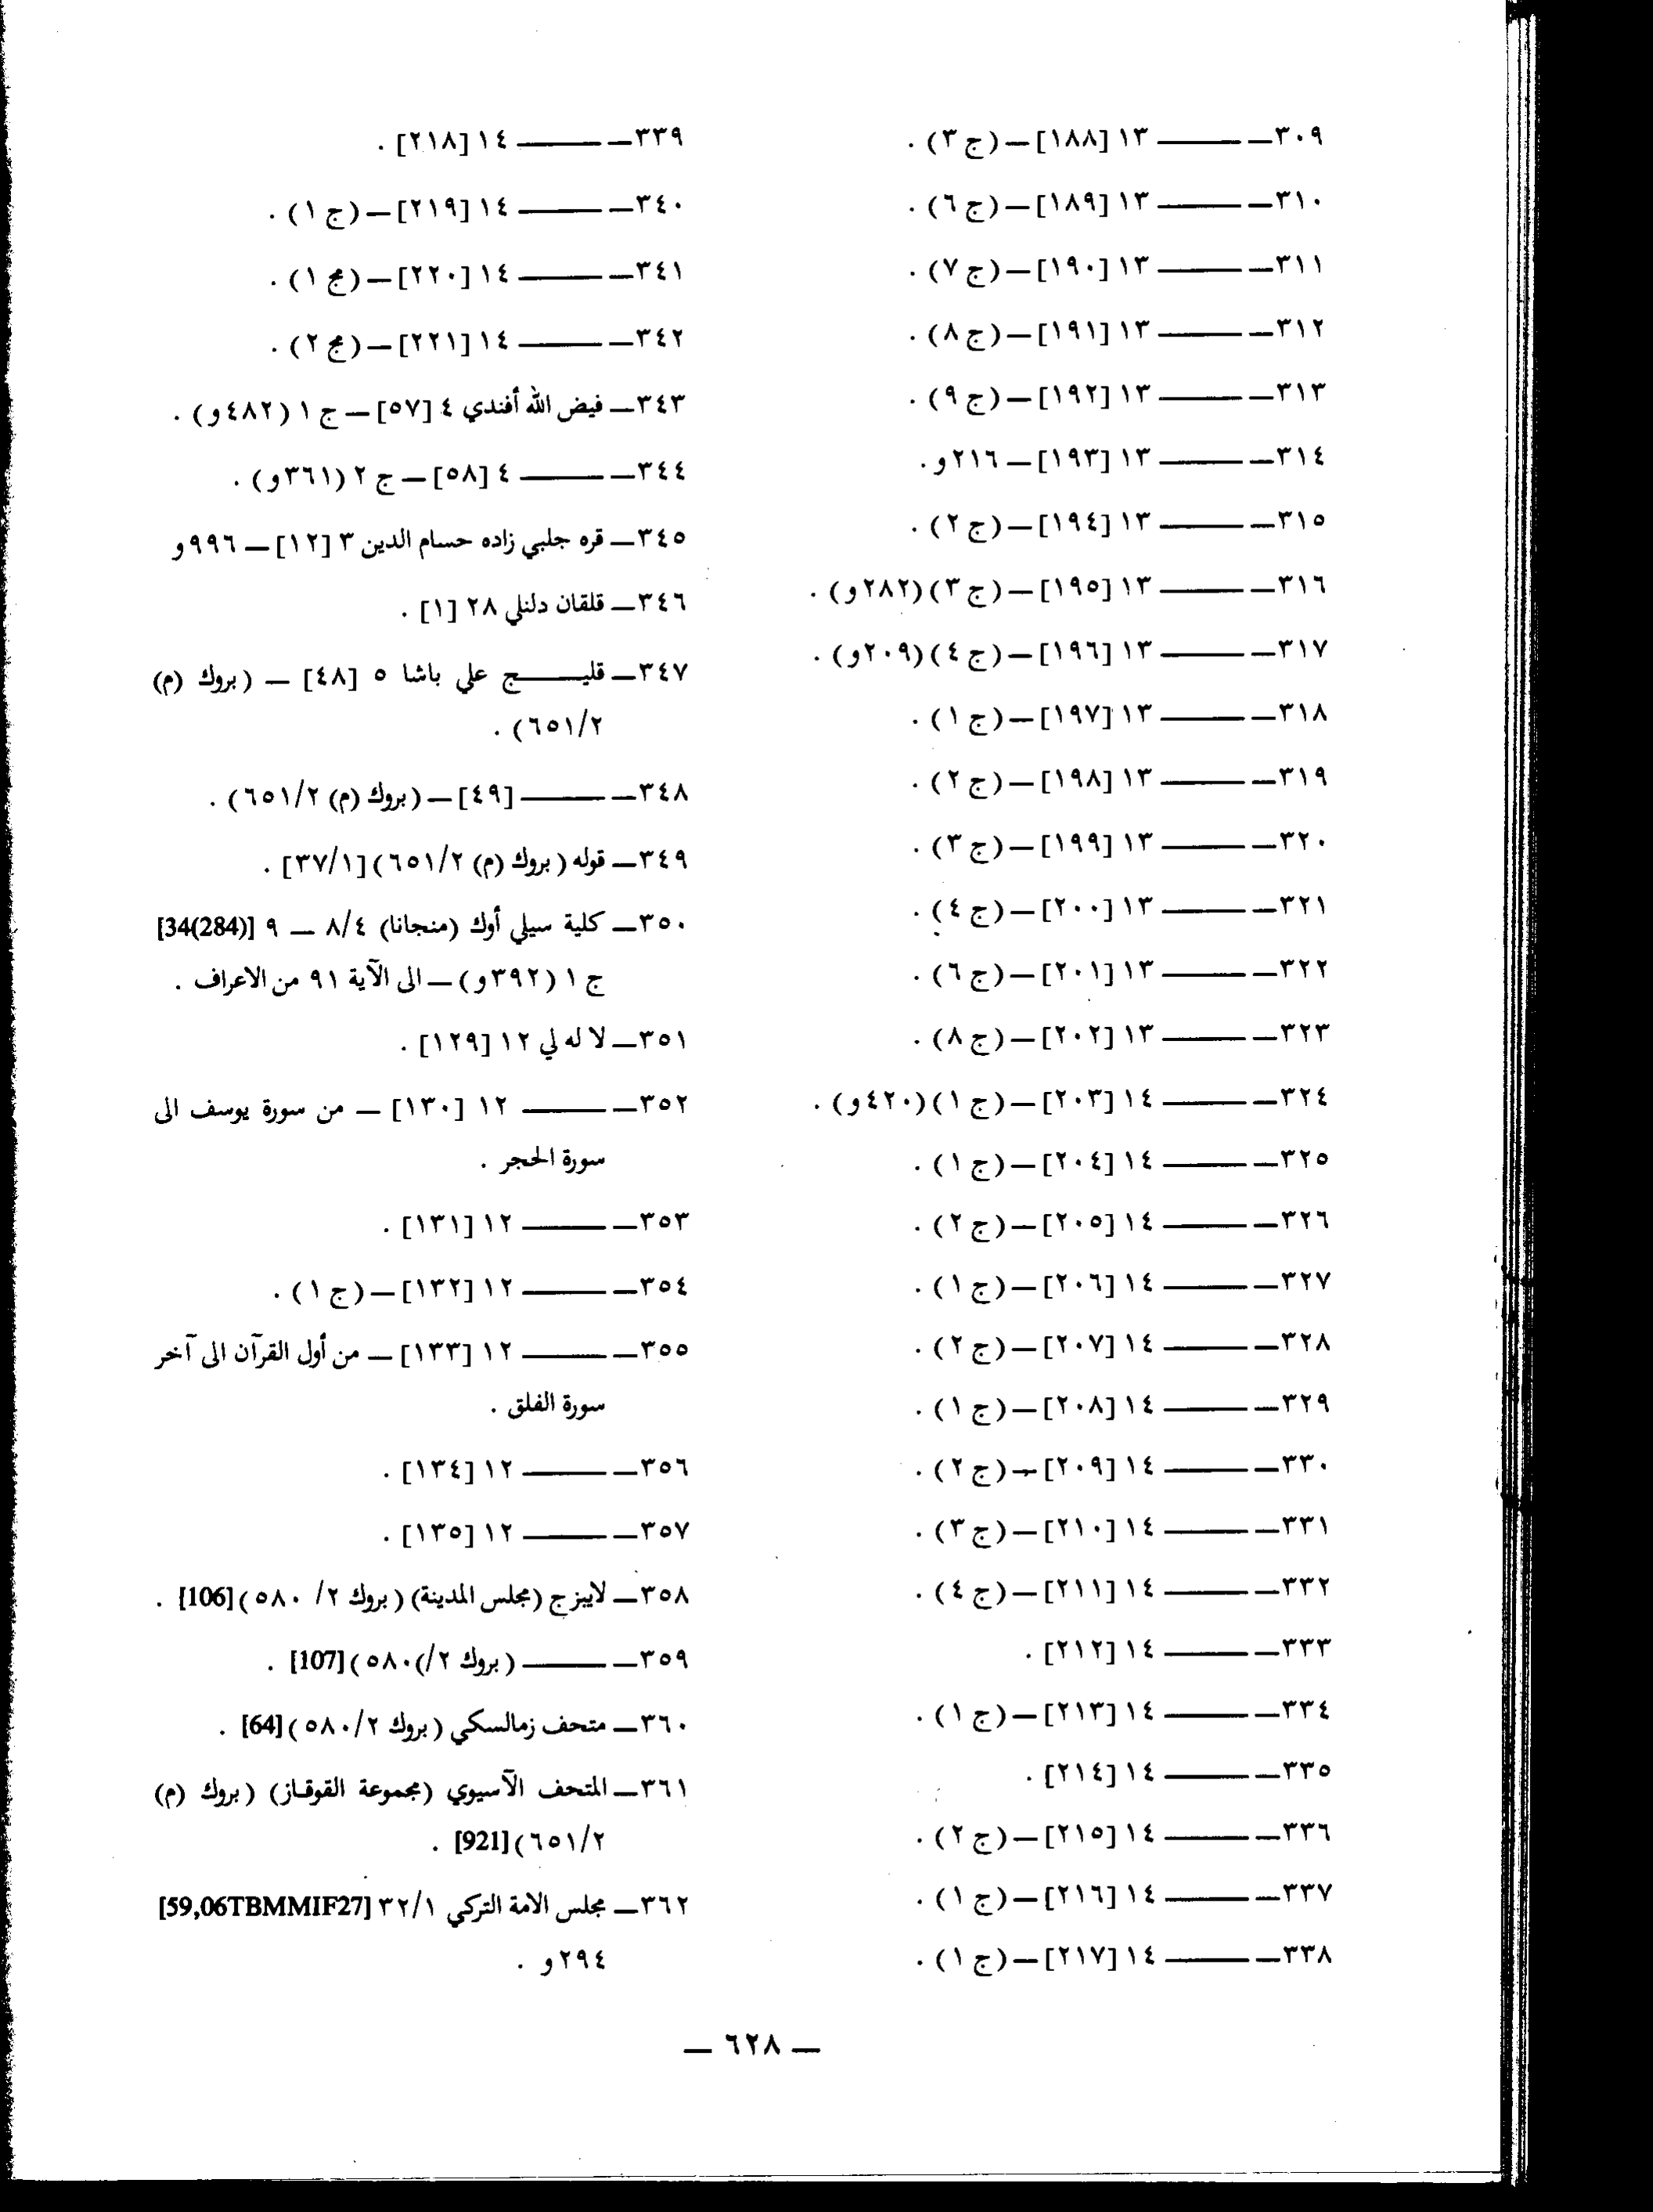 ٣٠٩ــ ــــــــ ١٣ [١٨٨] ــ (ج ٣) .
٣١٠ــ ــــــــ ١٣ [١٨٩] ــ (ج ٦) .
٣١١ــ ــــــــ ١٣ [١٩٠] ــ (ج ٧) .
٣١٢ــ ــــــــ ١٣ [١٩١] ــ (ج ٨) .
٣١٣ــ ــــــــ ١٣ [١٩٢] ــ (ج ٩) .
٣١٤ــ ــــــــ ١٣ [١٩٣] ــ ٢١٦و .
٣١٥ــ ــــــــ ١٣ [١٩٤] ــ (ج ٢) .
٣١٦ــ ــــــــ ١٣ [١٩٥] ــ (ج ٣) (٢٨٢و) .
٣١٧ــ ــــــــ ١٣ [١٩٦] ــ (ج ٤) (٢٠٩و) .
٣١٨ــ ــــــــ ١٣ [١٩٧] ــ (ج ١) .
٣١٩ــ ــــــــ ١٣ [١٩٨] ــ (ج ٢) .
٣٢٠ــ ــــــــ ١٣ [١٩٩] ــ (ج ٣) .
٣٢١ــ ــــــــ ١٣ [٢٠٠] ــ (ج ٤) .
٣٢٢ــ ــــــــ ١٣ [٢٠١] ــ (ج ٦) .
٣٢٣ــ ــــــــ ١٣ [٢٠٢] ــ (ج ٨) .
٣٢٤ــ ــــــــ ١٤ [٢٠٣] ــ (ج ١) (٤٢٠و) .
٣٢٥ــ ــــــــ ١٤ [٢٠٤] ــ (ج ١) .
٣٢٦ــ ــــــــ ١٤ [٢٠٥] ــ (ج ٢) .
٣٢٧ــ ــــــــ ١٤ [٢٠٦] ــ (ج ١) .
٣٢٨ــ ــــــــ ١٤ [٢٠٧] ــ (ج ٢) .
٣٢٩ــ ــــــــ ١٤ [٢٠٨] ــ (ج ١) .
٣٣٠ــ ــــــــ ١٤ [٢٠٩] ــ (ج ٢) .
٣٣١ــ ــــــــ ١٤ [٢١٠] ــ (ج ٣) .
٣٣٢ــ ــــــــ ١٤ [٢١١] ــ (ج ٤) .
٣٣٣ــ ــــــــ ١٤ [٢١٢] .
٣٣٤ــ ــــــــ ١٤ [٢١٣] ــ (ج ١) .
٣٣٥ــ ــــــــ ١٤ [٢١٤] .
٣٣٦ــ ــــــــ ١٤ [٢١٥] ــ (ج ٢) .
٣٣٧ــ ــــــــ ١٤ [٢١٦] ــ (ج ١) .
٣٣٨ــ ــــــــ ١٤ [٢١٧] ــ (ج ١) .
٣٣٩ــ ــــــــ ١٤ [٢١٨] .
٣٤٠ــ ــــــــ ١٤ [٢١٩] ــ (ج ١) .
٣٤١ــ ــــــــ ١٤ [٢٢٠] ــ (مج ١) .
٣٤٢ــ ــــــــ ١٤ [٢٢١] ــ (مج ٢) .
٣٤٣ــ فيض الله أفندي ٤ [٥٧] ــ ج ١ (٤٨٢و) .
٣٤٤ــ ــــــــ ٤ [٥٨] ــ ج ٢ (٣٦١و) .
٣٤٥ــ قره جلبي زاده حسام الدين ٣ [١٢] ــ ٩٩٦و
٣٤٦ــ قلقان دلنلي ٢٨ [١] .
٣٤٧ــ قليـــــج علي باشا ٥ [٤٨] ــ (بروك (م)
٦٥١/٢) .
٣٤٨ــ ــــــــ [٤٩] ــ (بروك (م) ٦٥١/٢) .
٣٤٩ــ قوله (بروك (م) ٦٥١/٢) [٣٧/١] .
٣٥٠ــ كلية سيلي أوك (منجانا) ٨/٤ ــ ٩ [34(284)]
ج ١ (٣٩٢و) ــ الى الآية ٩١ من الاعراف .
٣٥١ــ لا له لي ١٢ [١٢٩] .
٣٥٢ــ ــــــــ ١٢ [١٣٠] ــ من سورة يوسف الى
سورة الحجر .
٣٥٣ــ ــــــــ ١٢ [١٣١] .
٣٥٤ــ ــــــــ ١٢ [١٣٢] ــ (ج ١) .
٣٥٥ــ ــــــــ ١٢ [١٣٣] ــ من أول القرآن الى آخر
سورة الفلق .
٣٥٦ــ ــــــــ ١٢ [١٣٤] .
٣٥٧ــ ــــــــ ١٢ [١٣٥] .
٣٥٨ــ لايبزج (مجلس المدينة) (بروك ٢/ ٥٨٠) [106] .
٣٥٩ــ ــــــــ (بروك ٢/)٥٨٠) [107] .
٣٦٠ــ متحف زمالسكي (بروك ٥٨٠/٢) [64] .
٣٦١ــ المتحف الآسيوي (مجموعة القوقـاز) (بروك (م)
٦٥١/٢) [921] .
٣٦٢ــ مجلس الامة التركي ٣٢/١ [59,06TBMMIF27]
٢٩٤و .
ــ ٦٢٨ ــ